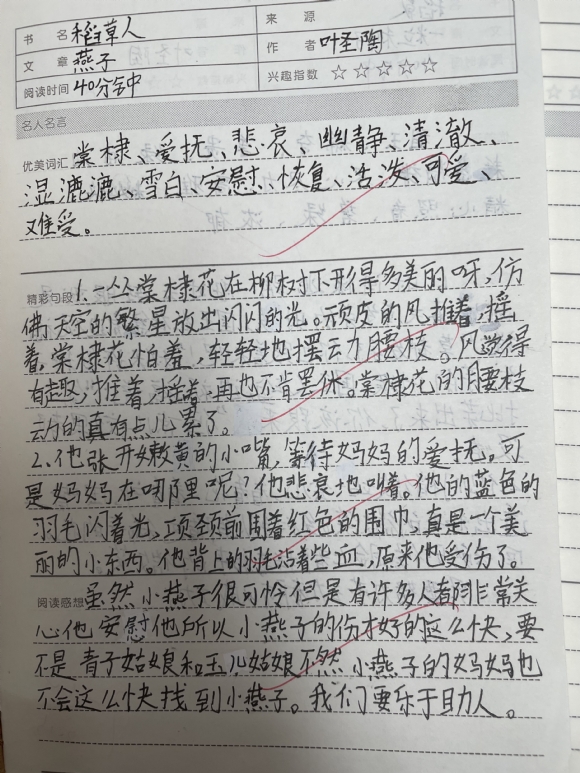 书 名 稻草人 来 源
文 章 燕子 作 者 叶圣陶
阅读时间 40分钟 兴趣指数 ☆☆☆☆☆
名人名言
优美词汇 棠棣、爱抚、悲哀、幽静、清澈、
湿漉漉、雪白、安慰、恢复、活泼、可爱、
难受。
精彩句段 1.一丛棠棣花在柳树下形得多美丽呀,仿
佛天空的繁星放出闪闪的光。顽皮的风推着,摇
着,棠棣花怕羞,轻轻地摆动腰枝。风觉得
有趣,推着,摇着,再也不肯罢休。棠棣花的腰枝
动的真有点儿累了。
2.他张开嫩黄的小嘴,等待妈妈的爱抚。可
是妈妈在哪里呢?他悲哀地叫着。他的蓝色的
羽毛闪着光,项颈前围着红色的围巾,真是一个美
丽的小东西。他背上的羽毛沾着些血,原来他受伤了。
阅读感想 虽然小燕子很可怜但是有许多人都非常关
心他安慰他所以小燕子的伤才好的这么快,要
不是青子姑娘和玉儿姑娘不然小燕子的妈妈也
不会这么快找到小燕子。我们要乐于助人。